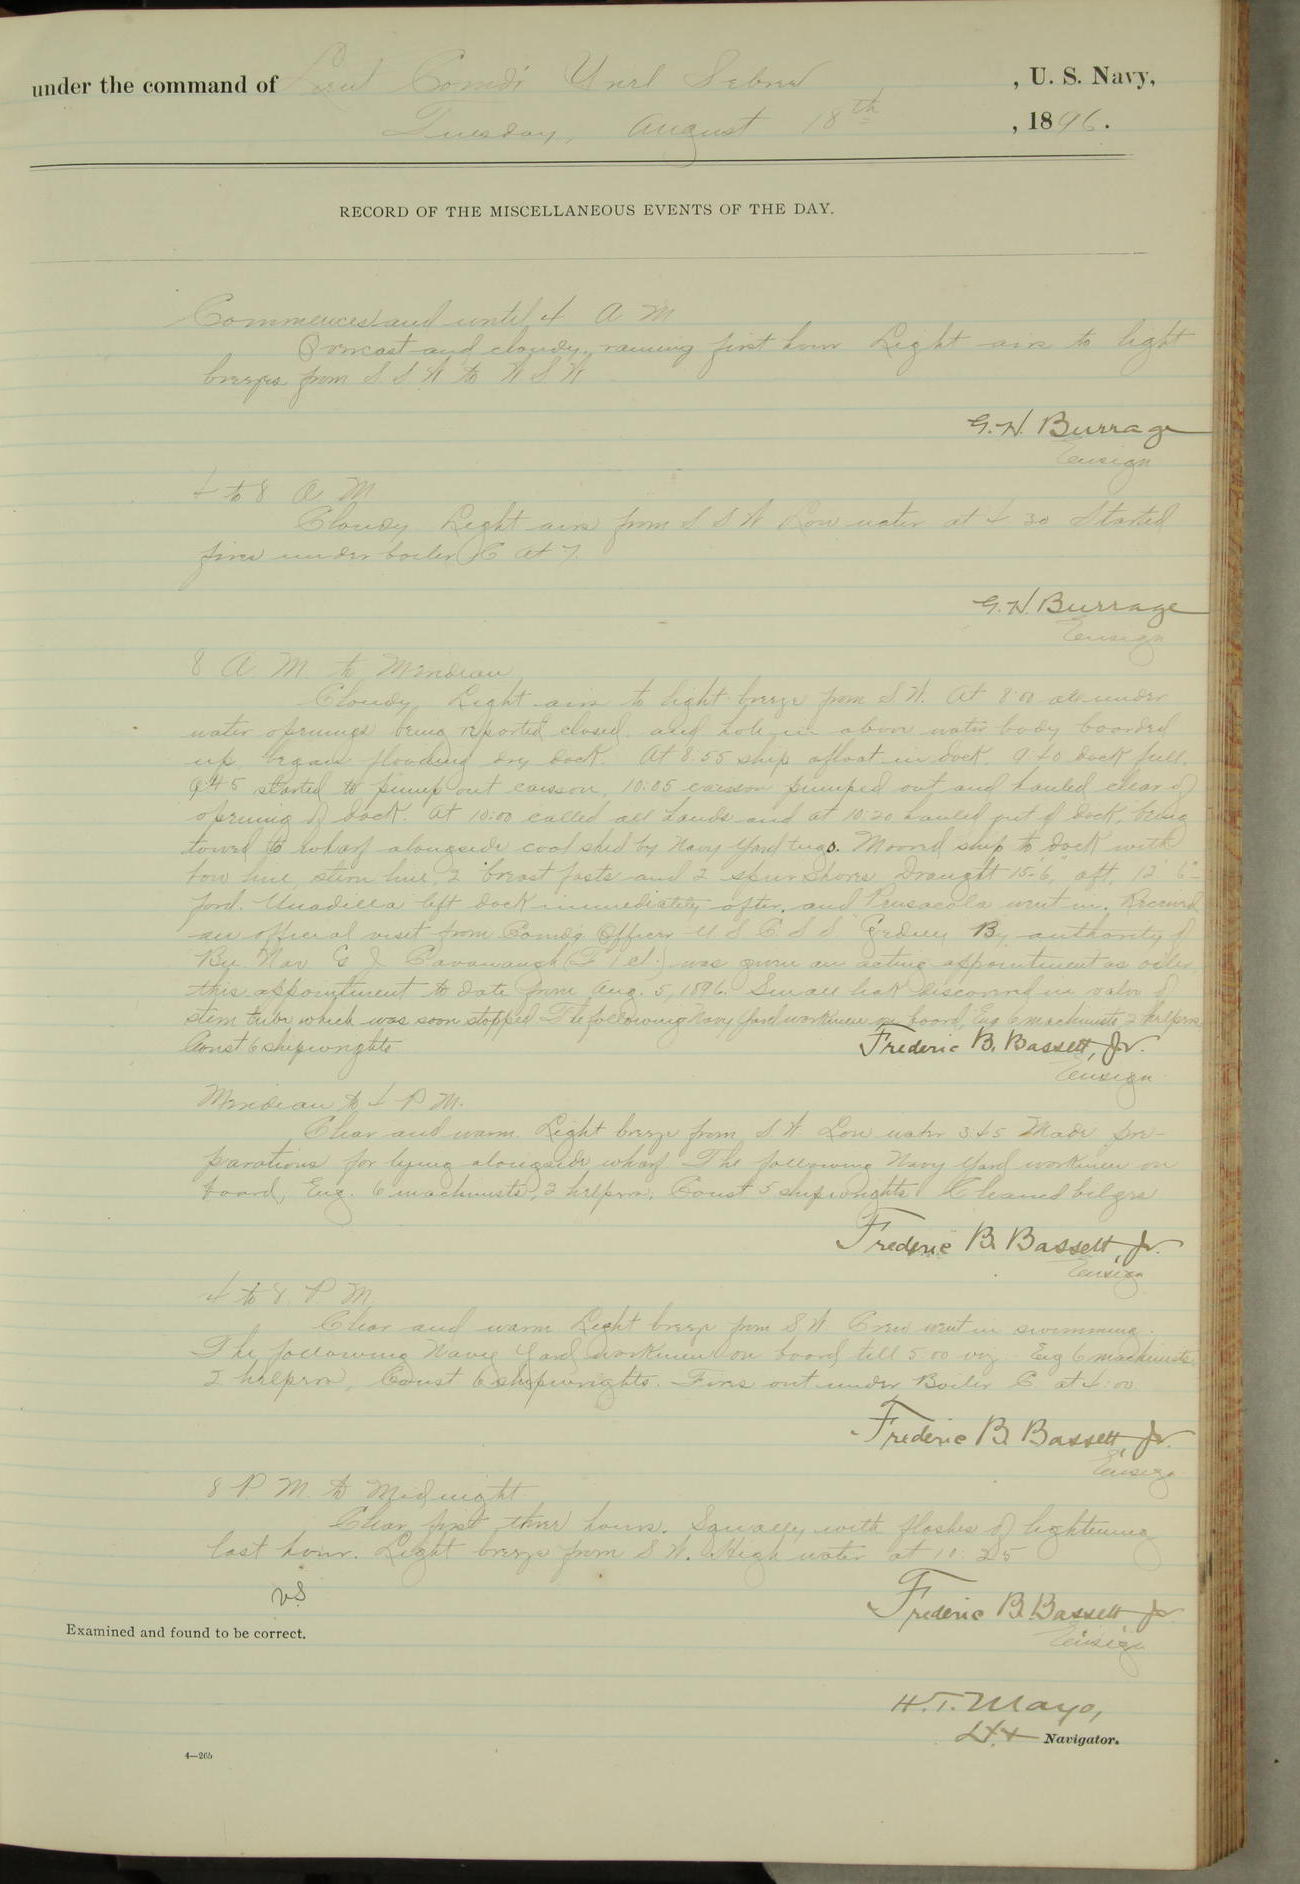 under the command of Lieut Comdr Uriel Sebree, U. S. Navy,
Tuesday, August 18th, 1896.
RECORD OF THE MISCELLANEOUS EVENTS OF THE DAY.
Commences and until 4 A M
Overcast and cloudy, raining first hour Light airs to light
breezes from S S W to W S W
G. N. Burrage
Ensign
4 to 8 A M
Cloudy Light airs from S S W Low water at 4 30 Started
fires under boiler C at 7.
G. N. Burrage
Ensign
8 A. M. to Meridian
Cloudy, Light airs to light breeze from S. W. At 8:00 all under
water openings being reported closed, and hole in above water body boarded
up, began flooding dry dock. At 8.55 ship afloat in dock. 9 40 dock full.
9 45 started to pump out caisson, 10:05 caisson pumped out and hauled clear of
opening of dock. At 10:00 called all hands and at 10:20 hauled out of dock, being
towed to wharf alongside coal shed by Navy Yard tugs. Moored ship to dock with
bow line, stern line, 2 breast fasts and 2 spur shores. Draught 15' 6" aft, 12' 6"
ford. Unadilla left dock immediately after, and Pensacola went in. Received
an official visit from Comdg Officer U S C S S Gedney By authority of
Bu. Nav G J Cavanaugh (F 1 cl.) was given an acting appointment as oiler
this appointment to date from Aug. 5, 1896. Small leak discovered in valve of
stern tube which was soon stopped The following Navy Yard workmen on board, Eng 6 machinists 2 helpers
Const 6 shipwrights
Frederic B. Bassett, Jr.
Ensign
Meridian to 4 P M.
Clear and warm. Light breeze from S W Low water 3 45 Made pre-
parations for lying alongside wharf The following Navy Yard workmen on
board, Eng. 6 machinists, 2 helpers, Const 5 shipwrights Cleaned bilges
Frederic B. Bassett, Jr.
Ensign
4 to 8 P M
Clear and warm Light breeze from S W Crew went in swimming.
The following Navy Yard workmen on board till 5 00 viz Eng 6 machinists
2 helpers, Const 6 shipwrights. Fires out under Boiler C at 4:00
Frederic B. Bassett, Jr.
Ensign
8 P M to Midnight
Clear first three hours. Squally with flashes of lightening
last hour. Light breeze from S W. High water at 10:25
Frederic B. Bassett Jr
Ensign
US
Examined and found to be correct.
H. T. Mayo,
Lt. Navigator.
4—265